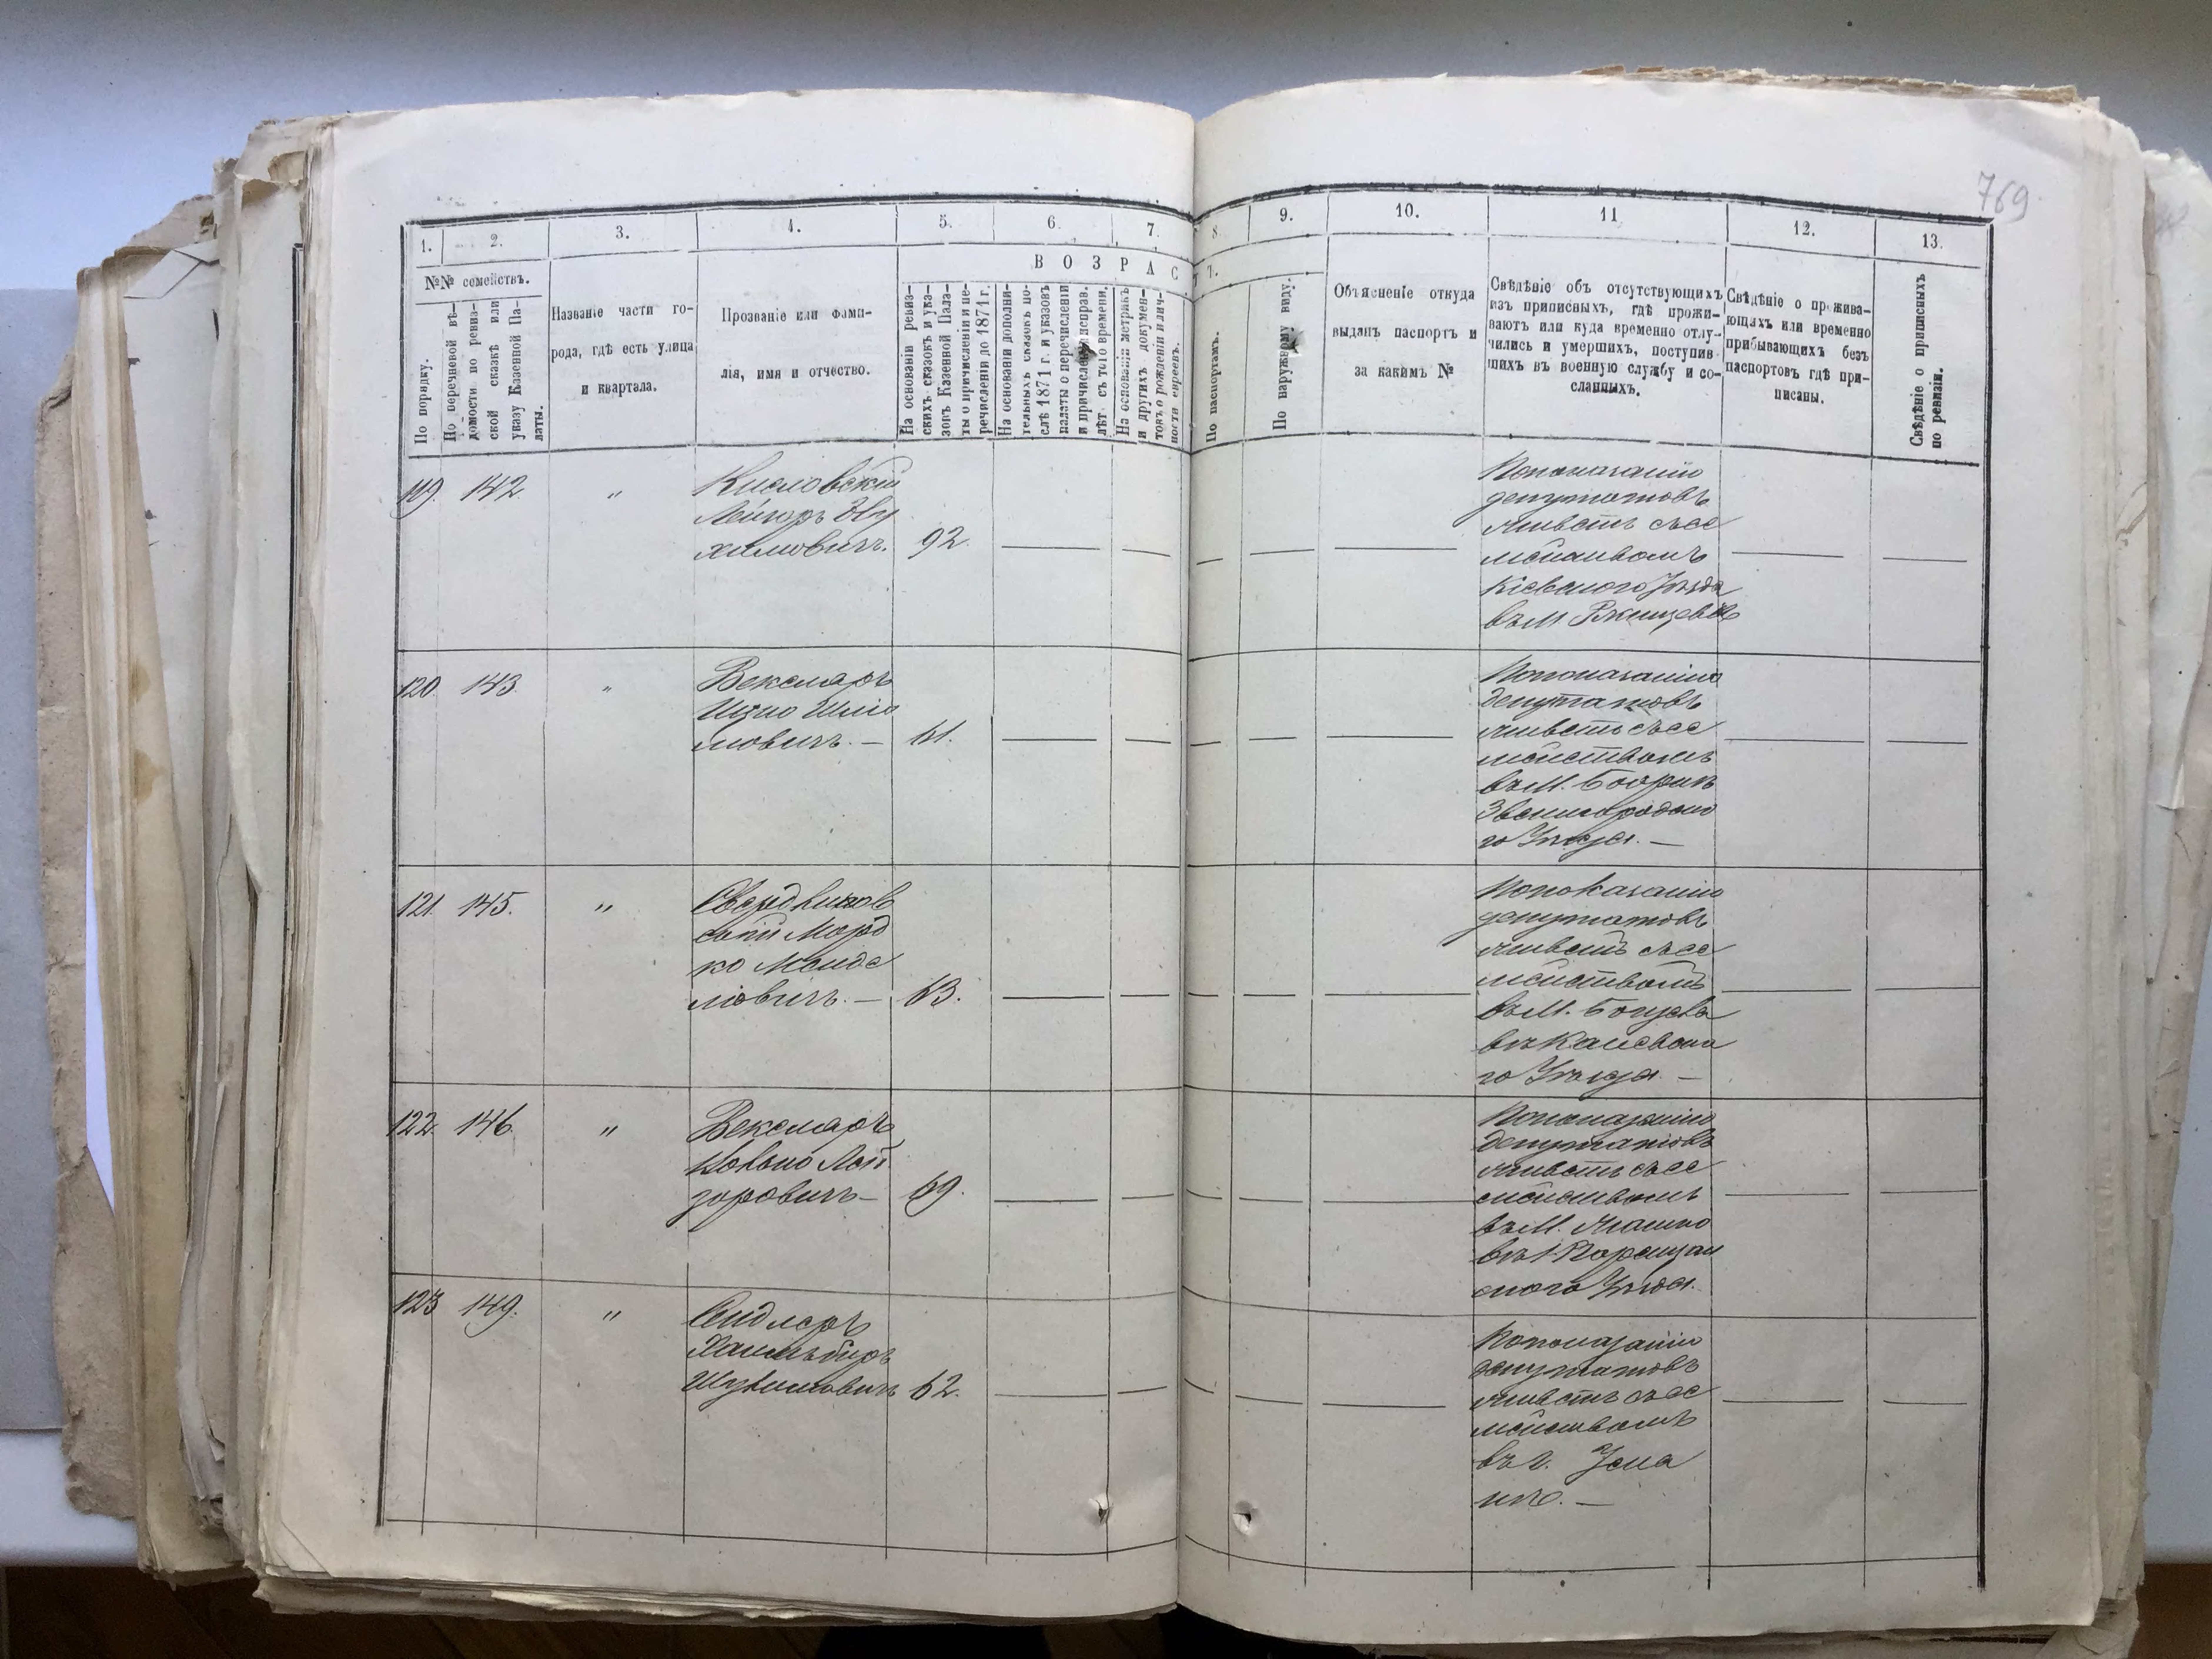 769
1.
2.
3.
4.
5.
6.
7.
8.
9.
10.
11
12.
13.
№№ семействъ.
ВОЗРАСТ
По порядку.
По перечневой вѣ-
домости по ревиз-
ской сказкѣ или
указу Казенной Па-
латы.
Названіе части го-
рода, гдѣ есть улица
и квартала.
Прозваніе или фами-
лія, имя и отчество.
На основаніи ревиз-
скихъ сказокъ и ука-
зовъ Казенной Пала-
ты о причисленіи и пе-
речисленіи до 1871 г.
На основаніи дополни-
тельныхъ сказокъ по-
слѣ 1871 г. и указовъ
палаты о перечисленіи
и причисленіи исправ.
лѣт съ того времени.
На основаніи метрикъ
и другихъ докумен-
товъ о рожденіи и лич-
ности евреевъ.
По паспортамъ.
По наружному виду.
Объясненіе откуда
выданъ паспортъ и
за какимъ №
Свѣдѣніе объ отсутствующихъ
изъ приписныхъ, гдѣ прожи-
ваютъ или куда временно отлу-
чились и умершихъ, поступив
шихъ въ военную службу и со-
сланныхъ.
Свѣдѣніе о прожива-
ющихъ или временно
прибывающихъ безъ
паспортовъ гдѣ при-
писаны.
Свѣдѣніе о приписныхъ
по ревизіи.
119. 142. "
Кисловскій
Лейзоръ
химовичъ. 92.
По показанію
депутатовъ
живетъ съ се
мействомъ
Кіевского Уѣзда
въ М Ржищевѣ
120. 143. "
Векслеръ
Ицко Шмю
ловичъ. — 61.
По показанію
депутатовъ
живетъ съ се
мействомъ
въ М.
Звенигородско
го Уѣзда. —
121. 145. "
скій Морд
ко Менде
лювичъ. — 63.
По показанію
депутатовъ
живетъ съ се
мействомъ
въ М. Богусла
вѣ Каневска
го Уѣзда. —
122. 146. "
Векслеръ
Лей
зоровичъ — 69.
По показанію
депутатовъ
живетъ съ се
мействомъ
въ М.
ского Уѣзда.
123 149. "
Сидлеръ
62.
По показанію
депутатовъ
живетъ съ се
мействомъ
въ г. Ума
нѣ. —